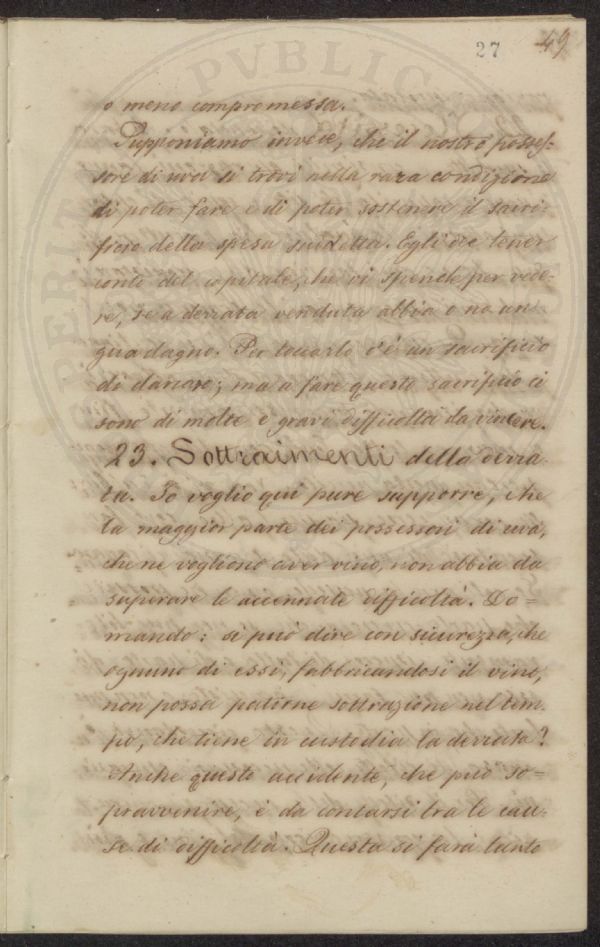 27 49
o meno compromessa.
Supponiamo invece, che il nostro posses-
sore di uva si trovi nella rara condizione
di poter fare e di poter sostenere il sacri-
ficio della spesa suddetta. Egli dee tener
conto del capitale, che vi spende per vede-
re, se a derrata venduta abbia o no un
guadagno. Per toccarlo c'è un sacrificio
di danaro; ma a fare questo sacrificio ci
sono di molte e gravi difficoltà da vincere.
23. Sottraimenti della derra-
ta. Io voglio qui pure supporre, che
la maggior parte dei possessori di uva,
che ne vogliono aver vino, non abbia da
superare le accennate difficoltà. Do=
mando: si può dire con sicurezza, che
ognuno di essi, fabbricandosi il vino,
non possa patirne sottrazione nel tem-
po, che tiene in custodia la derrata?
Anche questo accidente, che può so=
pravvenire, è da contarsi tra le cau-
se di difficoltà. Questa si farà tanto
PVBLIC